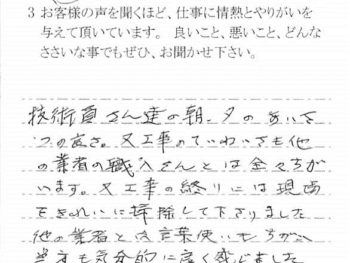 3 お客様の声を聞くほど、仕事に情熱とやりがいを
与えて頂いています。 良いこと、悪いこと、どんな
ささいな事でもぜひ、お聞かせ下さい。
技術員さん達の朝、夕のあいさ
つの高さ。又工事のていねいさも他
の業者の職人さんとは全くちが
います。又工事の終りには現場
をきれいに掃除して下さりました
他の業者とは言葉使いもちがい
も気分的に良く感じました